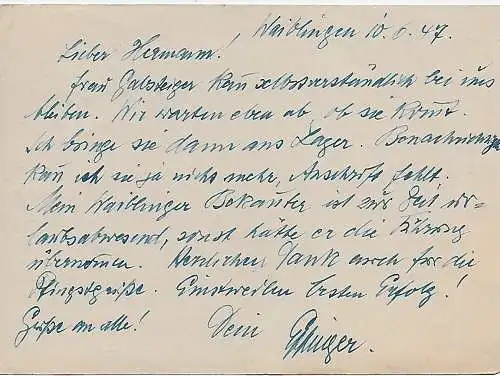 Waiblingen 10.6.47.
Lieber Hermann!
Frau Galsteiger kan selbstverständlich bei uns
bleiben. Wir warten eben ab, ob sie komt.
Ich bringe sie dann ans Lager. Benachrichtigen
kan ich sie ja nicht mehr, Anschrift fehlt.
Mein Waiblinger Bekannter ist zur Zeit ur-
laubsabwesend, sonst hätte er die Führung
übernomen. Herzlichen Dank auch für die
Pfingstgrüße. Einstweilen besten Erfolg!
Grüße an alle! Dein